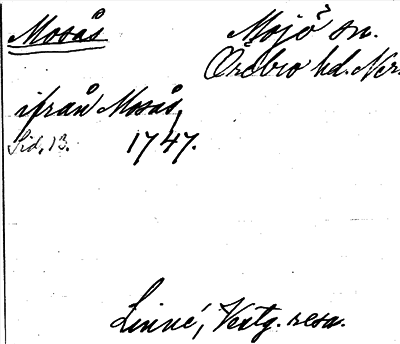 Mosås
Mosjö sn.
Örebro hd. Ner.
ifrån Mosås,
Sid. 13. 1747.
Linné, Vestg. resa.